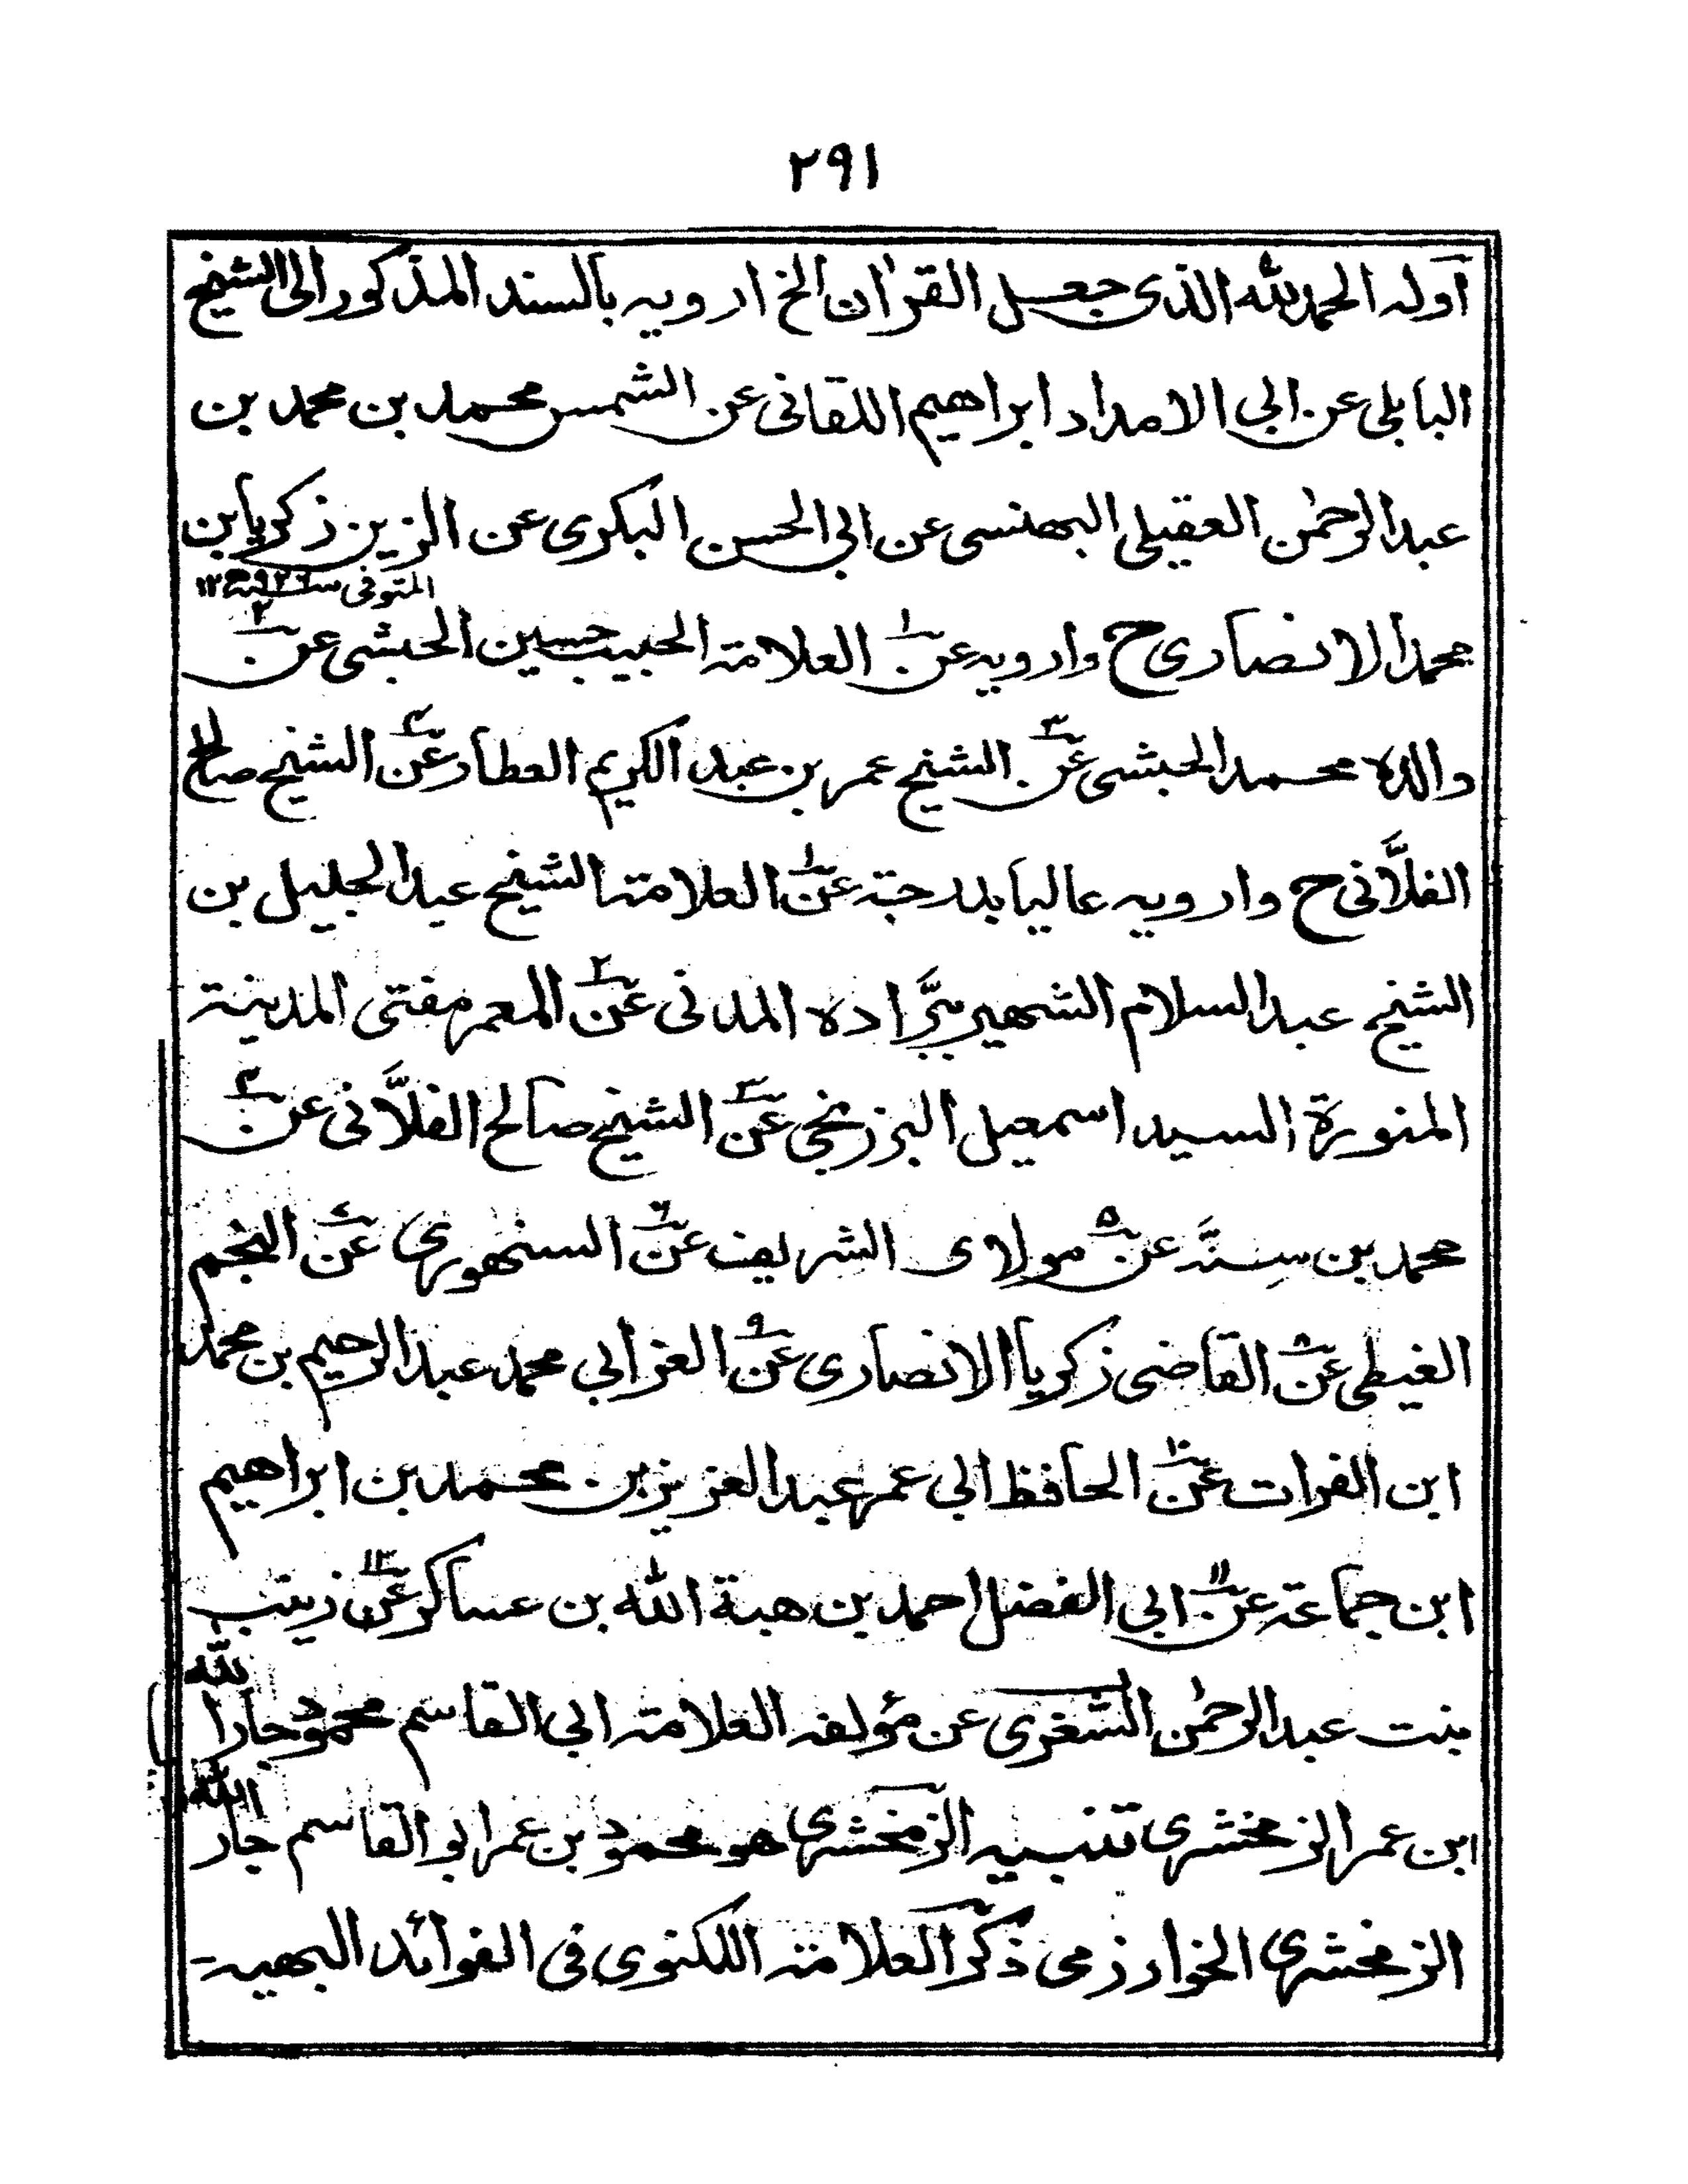 ٢٩١
اوله الحمد لله الذى جعل القرآن الخ ارويه بالسند المذكور الى الشيخ
البابلى عن ابى الامداد ابراهيم اللقانى عن الشمس محمد بن محمد بن
عبد الرحمن العقيلى البهنسى عن ابى الحسن البكرى عن الزين زكريا بن
المتوفى سنة ٩٢٦ھ ١٢
محمد الانصارى ح وارويه عن ١ العلامة الحبيب حسين الحبشى عن ٢
والده محمد الحبشى عن ٣ الشيخ عمر بن عبد الكريم العطار عن ٤ الشيخ صالح
الفلَّانى ح وارويه عاليا بدرجة عن ١ العلامة الشيخ عبد الجليل بن
الشيخ عبد السلام الشهير ببرَّاده المدنى عن ٢ المعمر مفتى المدينة
المنورة السيد اسمعيل البرزنجى عن ٣ الشيخ صالح الفلَّانى عن ٤
محمد بن سِنَّة عن ٥ مولاى الشريف عن ٦ السنهورى عن ٧ النجم
الغيطى عن ٨ القاضى زكريا الانصارى عن ٩ العز ابى محمد عبد الرحيم بن محمد
ابن الفرات عن ١٠ الحافظ ابى عمر عبد العزيز بن محمد بن ابراهيم
ابن جماعة عن ١١ ابى الفضل احمد بن هبة الله بن عساكر عن ١٢ زينب
بنت عبد الرحمن الشعرى عن مؤلفه العلامة ابى القاسم محمود جار الله
ابن عمر الزمخشرى تنبيه الزمخشرى هو محمود بن عمر ابو القاسم جار الله
الزمخشرى الخوارزمى ذكر العلامة اللكنوى فى الفوائد البهيه-